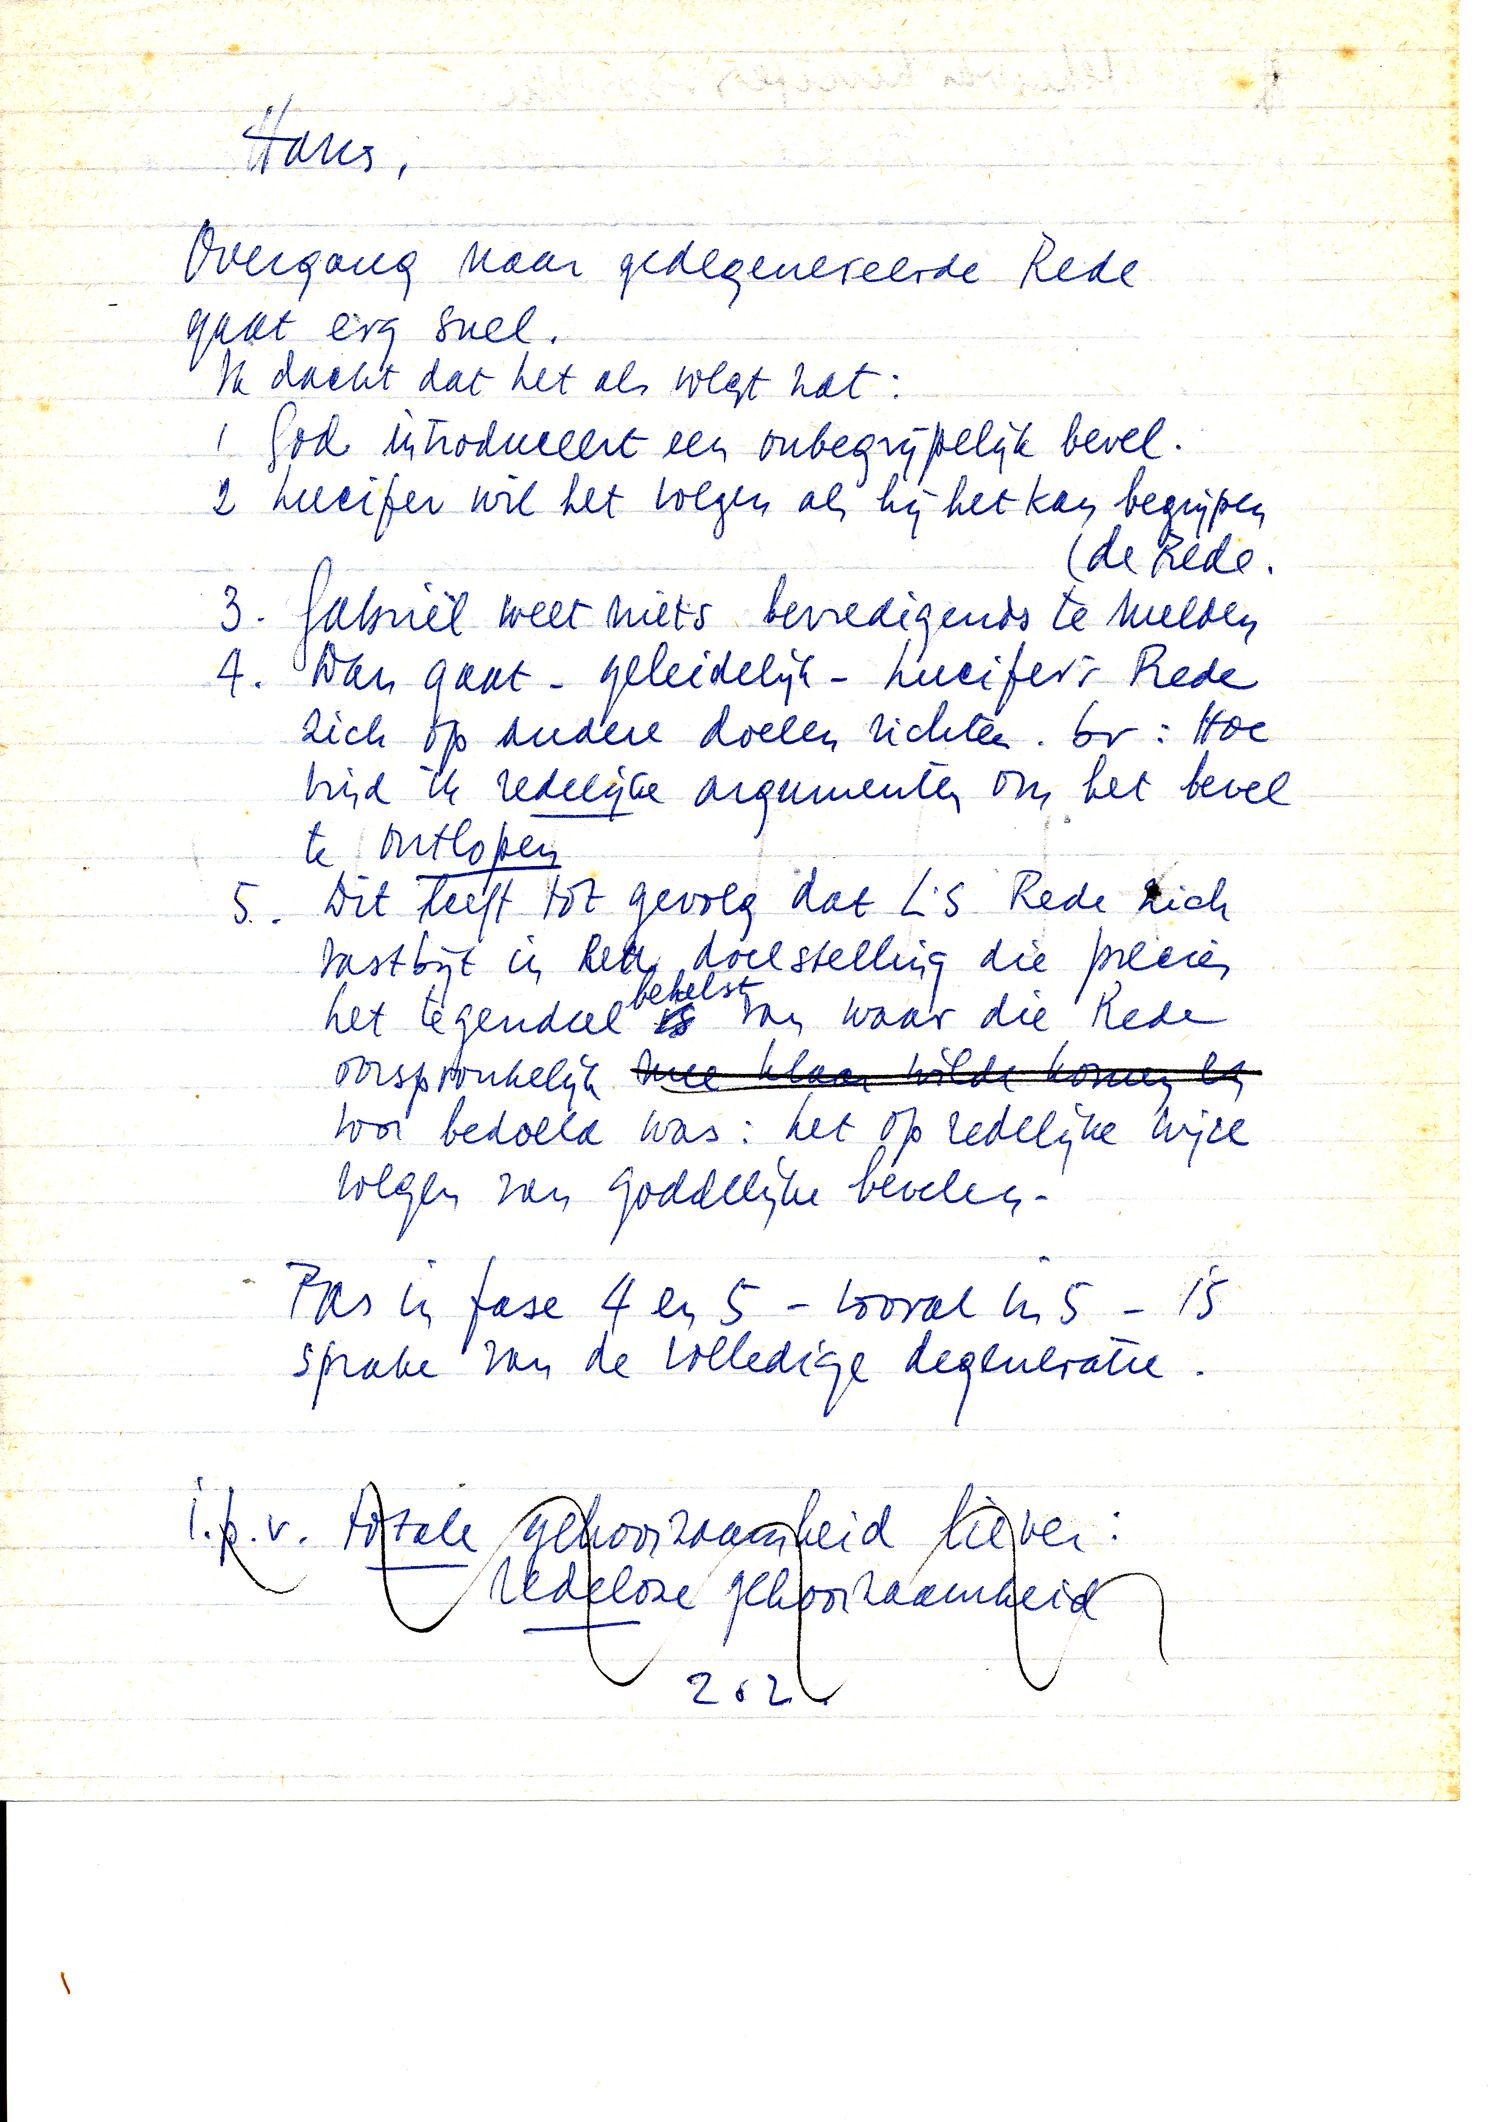 Hans,
Overgang naar gedegenereerde Rede
gaat erg snel.
Ik dacht dat het als volgt zat:
1 God introduceert een onbegrijpelijk bevel.
2 Lucifer wil het volgen als hij het kan begrijpen
(de Rede.
3. Gabriël weet niets bevredigends te melden
4. Dan gaat - geleidelijk - Lucifer's Rede
zich op andere doelen richten. bv: Hoe
vind ik redelijke argumenten om het bevel
te ontlopen
5. Dit heeft tot gevolg dat L's Rede zich
vastbijt in een doelstelling die precies
behelst
het tegendeel is van waar die Rede
oorspronkelijk mee klaar wilde komen en
voor bedoeld was: het op redelijke wijze
volgen van goddelijke bevelen -
Pas in fase 4 en 5 - vooral in 5 - is
sprake van de volledige degeneratie.
i.p.v. totale gehoorzaamheid liever:
redeloze gehoorzaamheid
z.o.z.